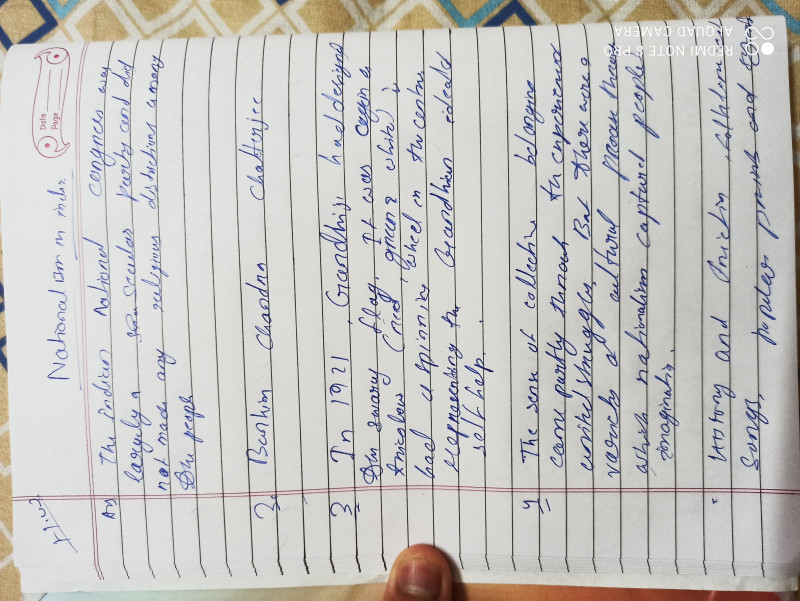 Date
Page
Nationalism in india
Ans The indian National congress was
largely a secular party and did
not made any religious distinctions among
the people
2. Bankim Chandra Chatterjee
3 In 1921, Gandhiji had designed
the swaraj flag. It was again a
tricolour (red, green & white) &
had a spinning wheel in the centre
representing the Gandhian ideald
self help.
4 The sense of collective belonging
came partly through the experience
united struggles. But there were
variety of cultural process through
which nationalism captured people
imagination.
History and fiction, folklore
songs, popular prints and
REDMI NOTE 8 PRO
AI QUAD CAMERA